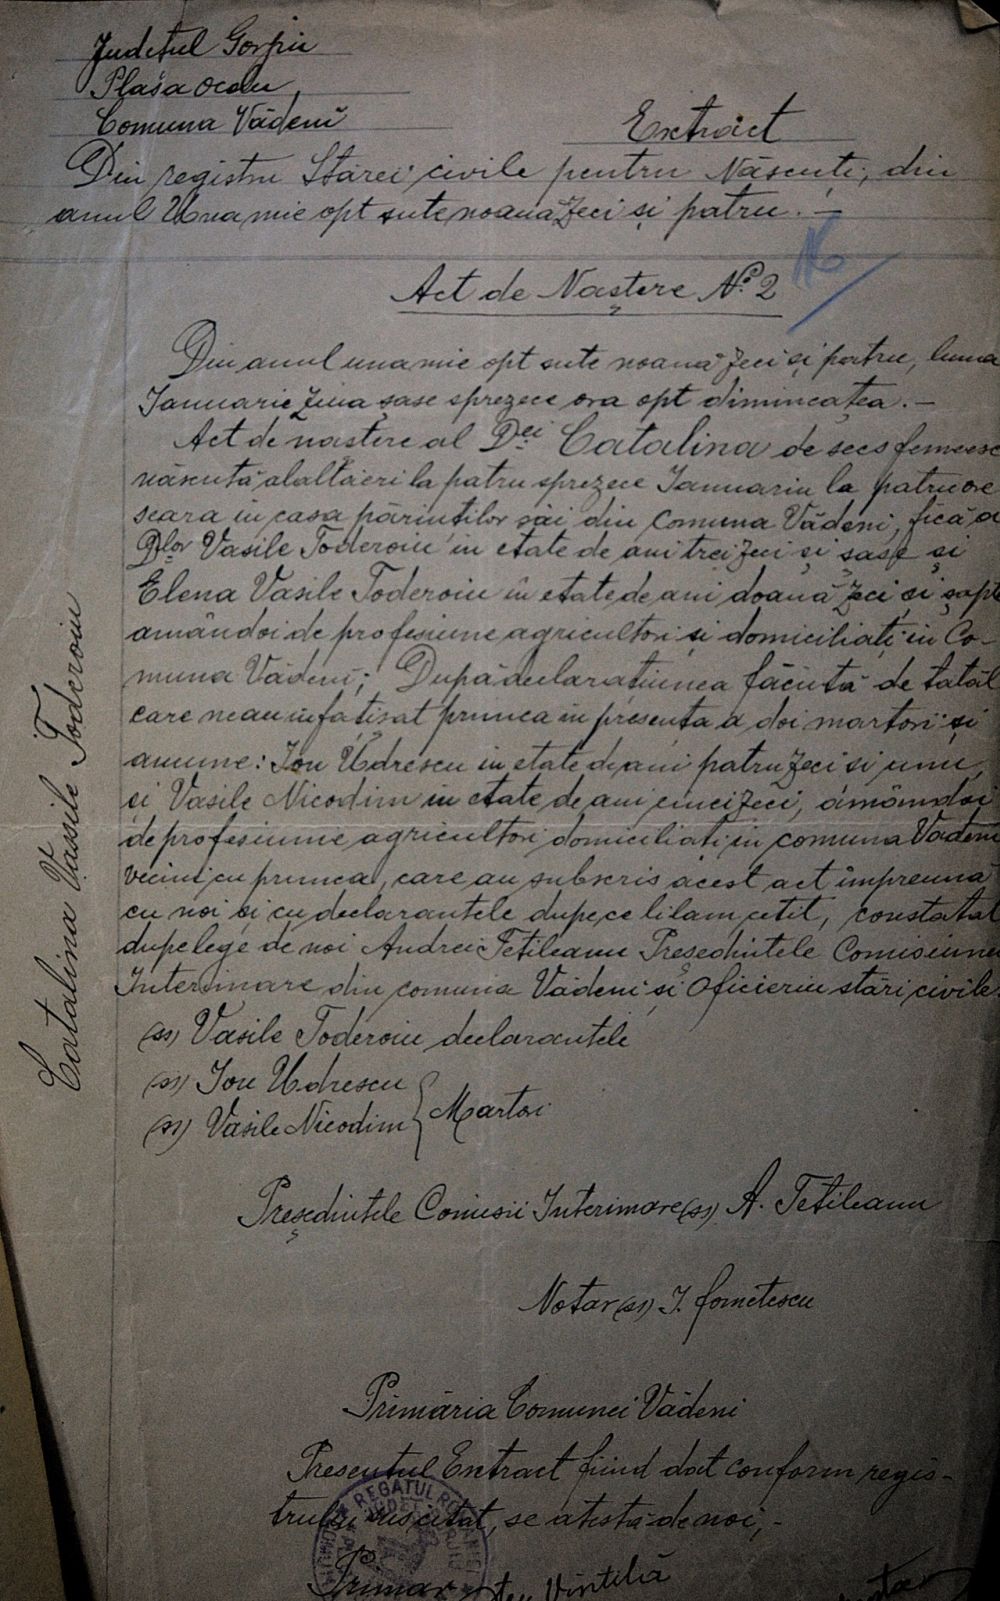 Județul Gorjiu
Plasa Ocolu
Comuna Vădeni
Extract
Din registru Stărei civile pentru Născuți, din
anul Una mie opt sute nouăzeci și patru. —
16
Act de Naștere No. 2
Din anul una mie opt sute nouă zeci și patru, luna
Ianuarie ziua șase sprezece ora opt dimineațea. —
Act de naștere al Dei Catalina de secs femeesc
născută alaltăeri la patru sprezece Ianuariu la patru ore
seara în casa părinților săi din comuna Vădeni, fică a
Dlor Vasile Toderoiu în etate de ani trei zeci și șase și
Elena Vasile Toderoiu în etate de ani două zeci și șapte
amândoi de profesiune agricultori și domiciliați în Co-
muna Vădeni; După declarațiunea făcută de tatăl
care neau înfațișat prunca în presența a doi martori și
anume: Ion Udrescu în etate de ani patru zeci si unu,
si Vasile Nicodim în etate de ani cinci zeci, amândoi
de profesiune agricultori domiciliați în comuna Vădeni
vecini cu prunca, care au subscris acest act împreună
cu noi și cu declarantele dupe ce lilam cetit, constatat
dupe lege de noi Andrei Tetileanu Președintele Comisiunei
Interimare din comuna Vădeni și Oficieriu stări civile.
(ss) Vasile Toderoiu declarantele
(ss) Ion Udrescu
(ss) Vasile Nicodim
Martori
Președintele Comisii Interimare (ss) A. Tetileanu
Notar (ss) I.
Primăria Comunei Vădeni
Presentul Extract fiind dat conform regis-
trului susscitat, se atestă de noi, -
Primar Vintilă
Catalina Vasile Toderoiu
REGATUL ROMÂNIEI